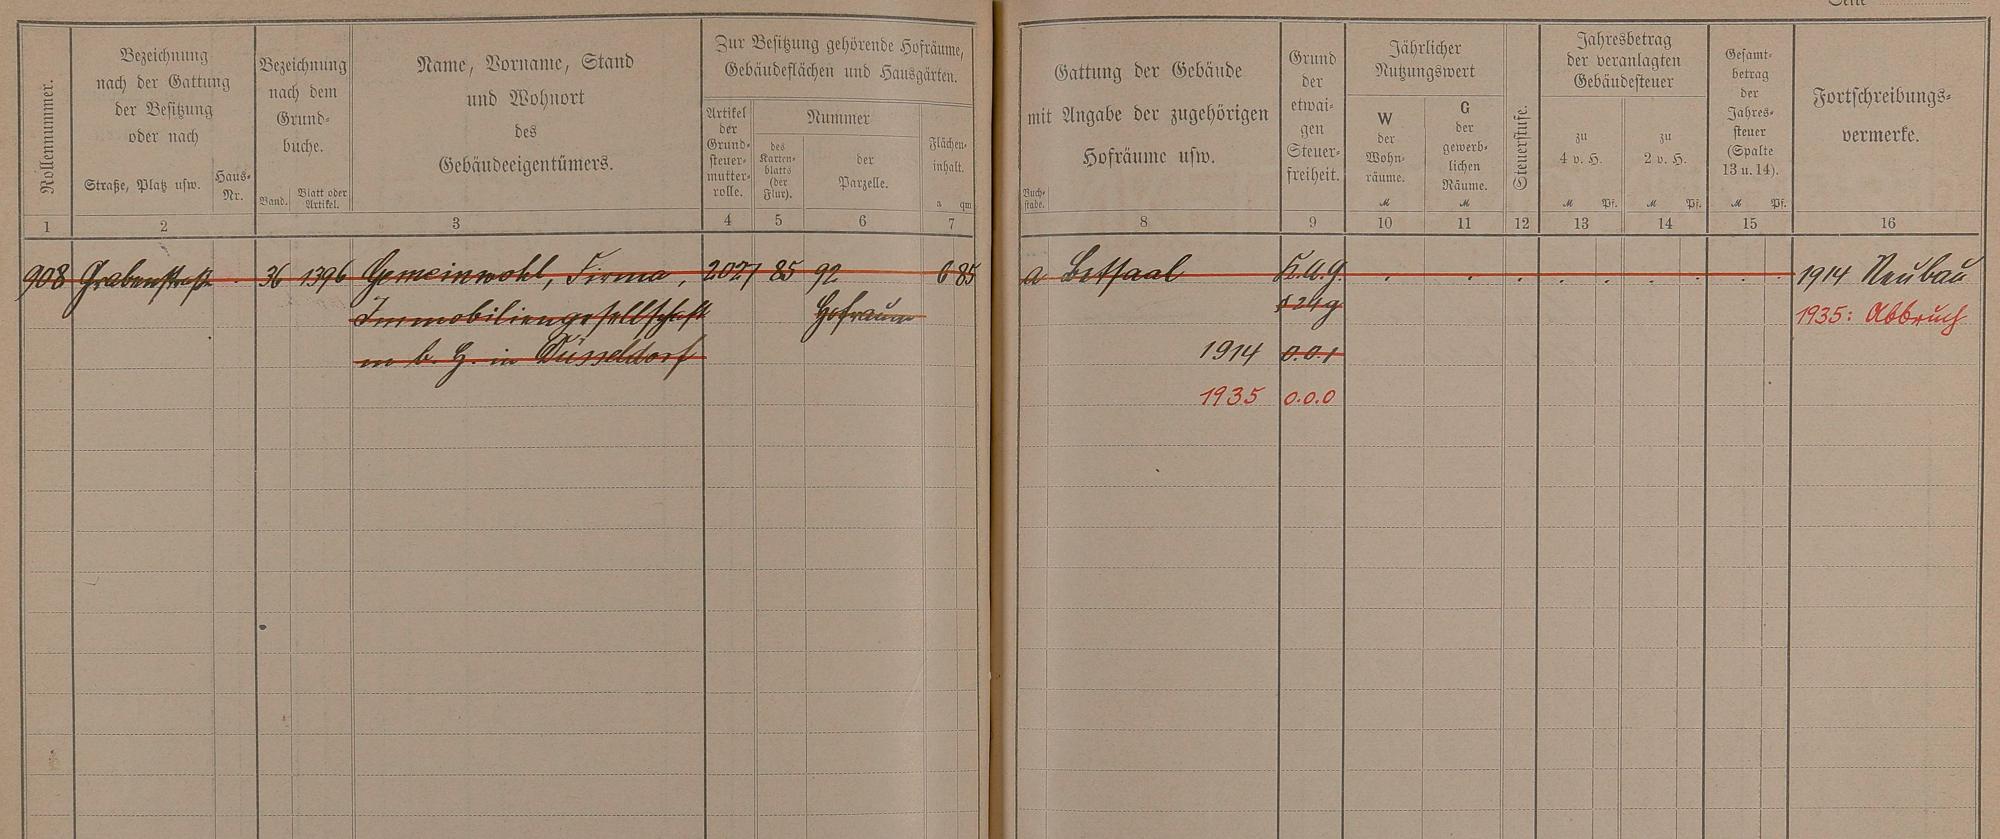 Seite
Rollennummer.
Bezeichnung
nach der Gattung
der Besitzung
oder nach
Straße, Platz usw.
Haus-
Nr.
Bezeichnung
nach dem
Grund-
buche.
Band.
Blatt oder
Artikel.
Name, Vorname, Stand
und Wohnort
des
Gebäudeeigentümers.
Zur Besitzung gehörende Hofräume,
Gebäudeflächen und Hausgärten.
Artikel
der
Grund-
steuer-
mutter-
rolle.
Nummer
des
Karten-
blatts
(der
Flur).
der
Parzelle.
Flächen-
inhalt.
a qm
Gattung der Gebäude
mit Angabe der zugehörigen
Hofräume usw.
Buch-
stabe.
Grund
der
etwai-
gen
Steuer-
freiheit.
Jährlicher
Nutzungswert
W
der
Wohn-
räume.
M
G
der
gewerb-
lichen
Räume.
M
Steuerstufe.
Jahresbetrag
der veranlagten
Gebäudesteuer
zu
4 v. H.
M Pf.
zu
2 v. H.
M Pf.
Gesamt-
betrag
der
Jahres-
steuer
(Spalte
13 u. 14).
M Pf.
Fortschreibungs-
vermerke.
1 2 3 4 5 6 7 8 9 10 11 12 13 14 15 16
908 Grabenstraße 36 1396 Gemeinwohl, Firma, 2027 85 92 6 85 a Betsaal K.A.G. 1914 Neubau
Immobiliengesellschaft Hofraum § 24 g 1935: Abbruch
m b. H. in Düsseldorf 1914 0.0.1
1935 0.0.0